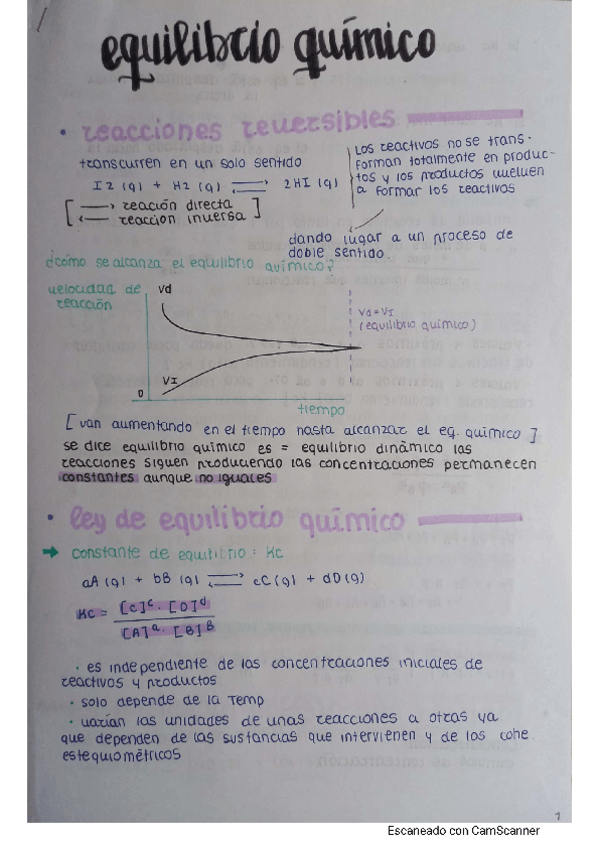 equilibrio químico
• reacciones reversibles
transcurren en un solo sentido
I2 (g) + H2 (g) ⇄ 2HI (g)
[ → reacción directa
← reaccion inversa ]
Los reactivos no se trans-
forman totalmente en produc-
tos y los productos vuelven
a formar los reactivos
dando lugar a un proceso de
doble sentido.
¿cómo se alcanza el equilibrio químico?
velocidad de
reacción
Vd
Vd = VI
(equilibrio químico)
VI
0
tiempo
[ van aumentando en el tiempo hasta alcanzar el eq. químico ]
se dice equilibrio químico es = equilibrio dinámico las
reacciones siguen produciendo las concentraciones permanecen
constantes aunque no iguales
• ley de equilibrio químico
→ constante de equilibrio: Kc
aA (g) + bB (g) ⇄ cC (g) + dD (g)
Kc = [C]^c · [D]^d
[A]^a · [B]^B
· es independiente de las concentraciones iniciales de
reactivos y productos
· solo depende de la Temp
· varían las unidades de unas reacciones a otras ya
que dependen de las sustancias que intervienen y de los cohe.
estequiométricos
1
Escaneado con CamScanner